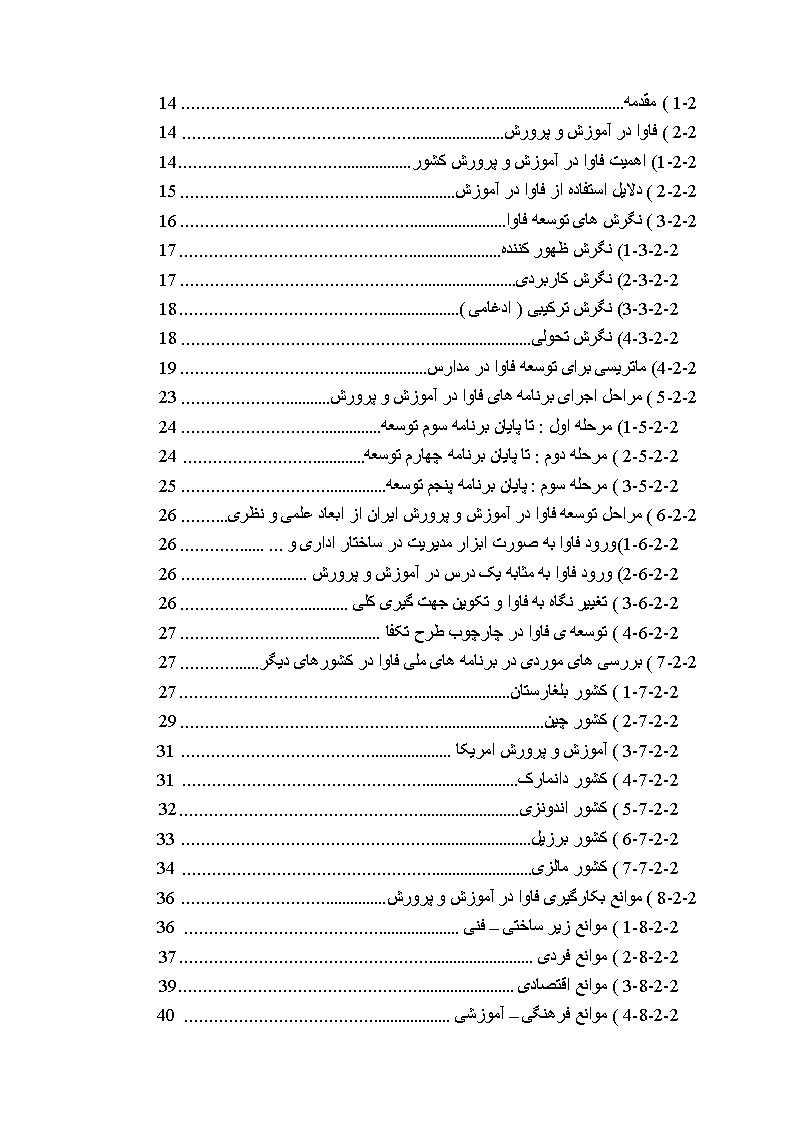 1-2 ) مقدمه................................................................................ 14
2-2 ) فاوا در آموزش و پرورش................................................................ 14
1-2-2) اهمیت فاوا در آموزش و پرورش کشور................................................ 14
2-2-2 ) دلایل استفاده از فاوا در آموزش.................................................... 15
3-2-2 ) نگرش های توسعه فاوا............................................................ 16
1-3-2-2) نگرش ظهور کننده............................................................ 17
2-3-2-2) نگرش کاربردی............................................................... 17
3-3-2-2) نگرش ترکیبی ( ادغامی )..................................................... 18
4-3-2-2) نگرش تحولی................................................................. 18
4-2-2) ماتریسی برای توسعه فاوا در مدارس................................................ 19
5-2-2 ) مراحل اجرای برنامه های فاوا در آموزش و پرورش................................ 23
1-5-2-2) مرحله اول : تا پایان برنامه سوم توسعه........................................ 24
2-5-2-2 ) مرحله دوم : تا پایان برنامه چهارم توسعه..................................... 24
3-5-2-2 ) مرحله سوم : پایان برنامه پنجم توسعه........................................ 25
6-2-2 ) مراحل توسعه فاوا در آموزش و پرورش ایران از ابعاد علمی و نظری.......... 26
1-6-2-2)ورود فاوا به صورت ابزار مدیریت در ساختار اداری و ... ................. 26
2-6-2-2) ورود فاوا به مثابه یک درس در آموزش و پرورش .......................... 26
3-6-2-2 ) تغییر نگاه به فاوا و تکوین جهت گیری کلی ................................ 26
4-6-2-2 ) توسعه ی فاوا در چارچوب طرح تکفا ........................................ 27
7-2-2 ) بررسی های موردی در برنامه های ملی فاوا در کشورهای دیگر................. 27
1-7-2-2 ) کشور بلغارستان............................................................ 27
2-7-2-2 ) کشور چین.................................................................. 29
3-7-2-2 ) آموزش و پرورش امریکا .................................................... 31
4-7-2-2 ) کشور دانمارک............................................................. 31
5-7-2-2 ) کشور اندونزی............................................................. 32
6-7-2-2 ) کشور برزیل............................................................... 33
7-7-2-2 ) کشور مالزی............................................................... 34
8-2-2 ) موانع بکارگیری فاوا در آموزش و پرورش........................................ 36
1-8-2-2 ) موانع زیر ساختی – فنی ................................................... 36
2-8-2-2 ) موانع فردی ............................................................... 37
3-8-2-2 ) موانع اقتصادی ............................................................ 39
4-8-2-2 ) موانع فرهنگی – آموزشی .................................................. 40